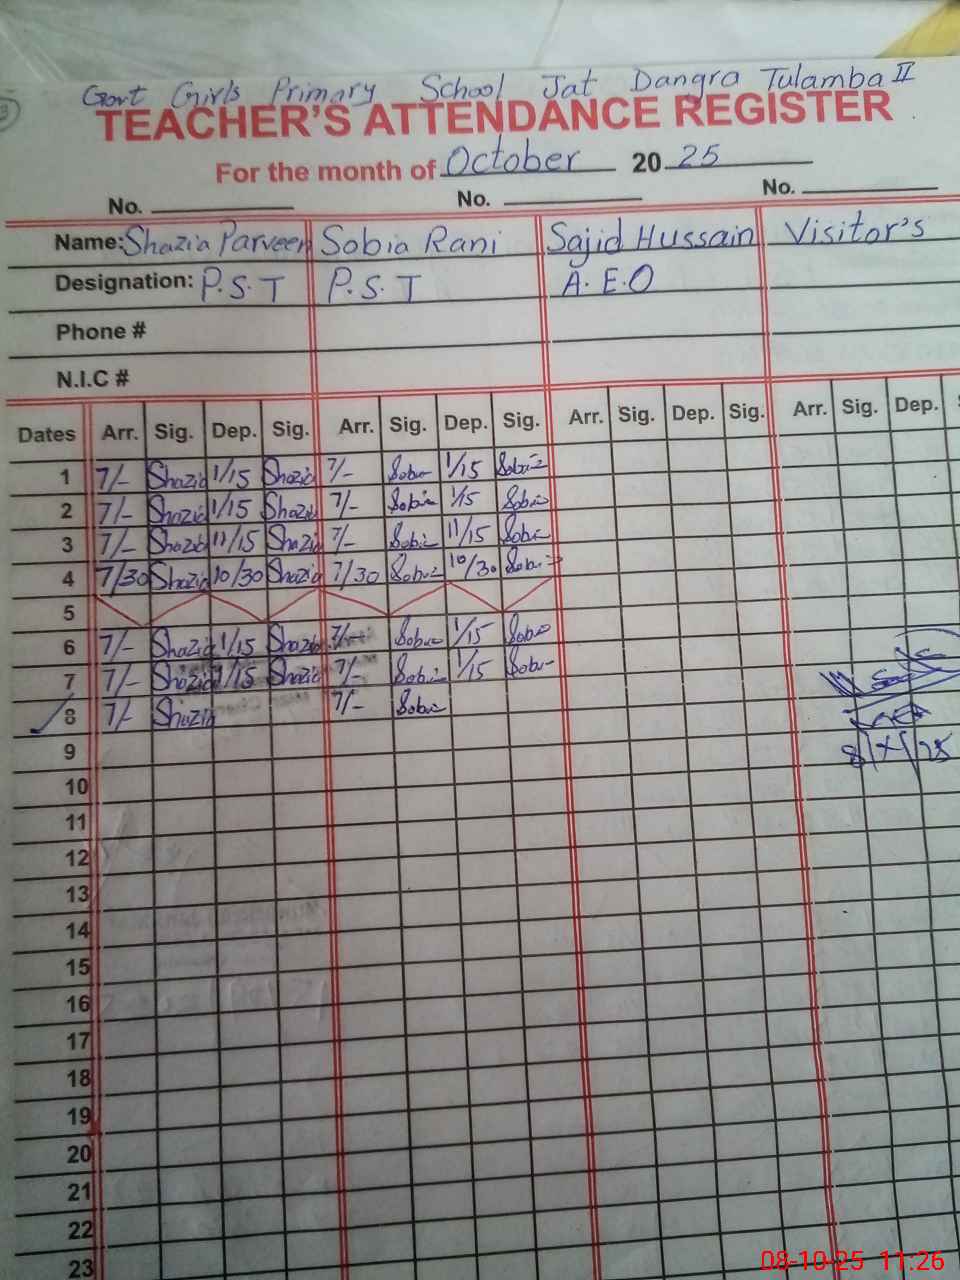 Govt Girls Primary School Jat Dangra Tulamba II
TEACHER'S ATTENDANCE REGISTER
For the month of October 2025
No. No. No.
Name: Shazia Parveen Sobia Rani Sajid Hussain Visitor's
Designation: P.S.T P.S.T A.E.O
Phone #
N.I.C #
Dates Arr. Sig. Dep. Sig. Arr. Sig. Dep. Sig. Arr. Sig. Dep. Sig. Arr. Sig. Dep.
1 7/- Shazia 1/15 Shazia 7/- Sobia 1/15 Sobia
2 7/- Shazia 1/15 Shazia 7/- Sobia 1/15 Sobia
3 7/- Shazia 11/15 Shazia 7/- Sobia 11/15 Sobia
4 7/30 Shazia 10/30 Shazia 7/30 Sobia 10/30 Sobia
5
6 7/- Shazia 1/15 Shazia 7/- Sobia 1/15 Sobia
7 7/- Shazia 1/15 Shazia 7/- Sobia 1/15 Sobia
8 7/- Shazia 7/- Sobia
9 8/X/25
10
11
12
13
14
15
16
17
18
19
20
21
22
23
08-10-25 11:26